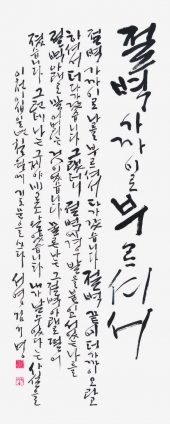 절벽 가까이로 부르셔서
절벽 가까이로 나를 부르셔서 다가갔습니다 절벽 끝에 더 가까이 오라고
하셔서 더 다가갔습니다 그랬더니 절벽에 겨우 발을 붙이고 서있는 나를
절벽 아래로 밀어버리시는 것이었습니다 물론 나는 그 절벽 아래로 떨어
졌습니다 그런데 나는 그제야 비로소 알았습니다 내가 날 수 있다는 사실을
쓰다